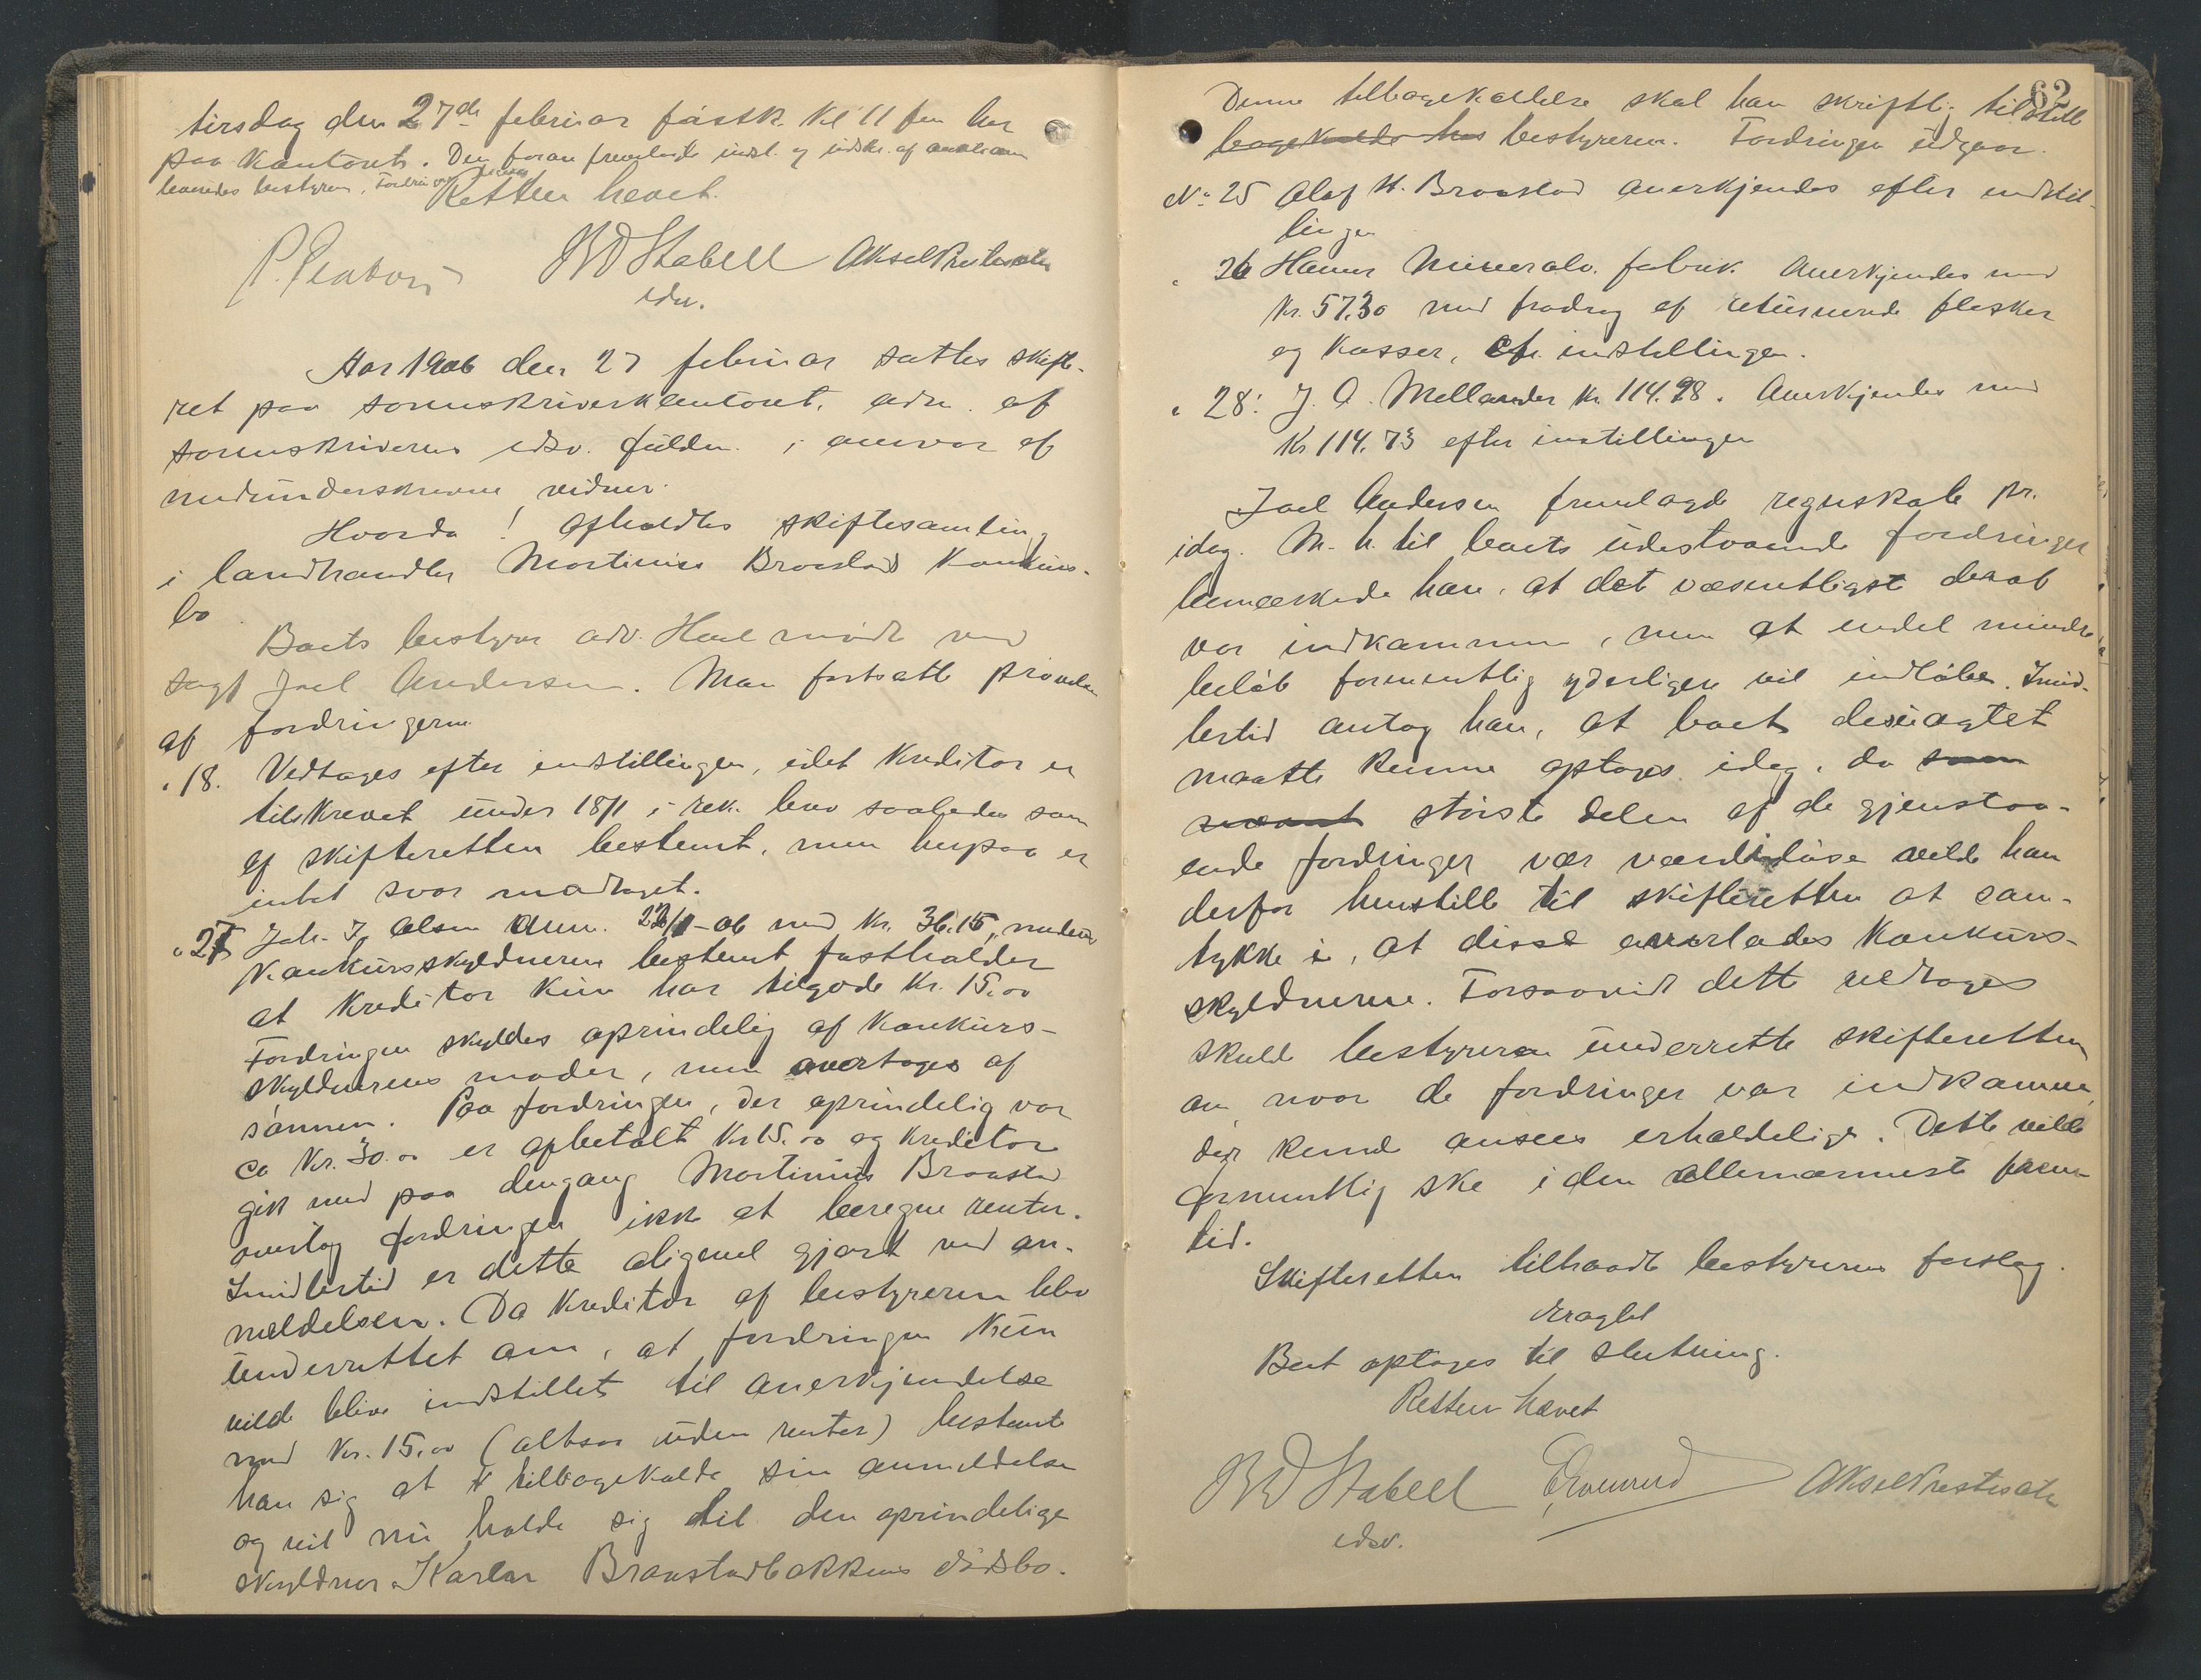 tirsdag den 27de februar førstk. kl 11 fm her
paa kontoret. Den foran fremlagte indst. og udskr. af
leveredes bestyreren.
Retten hævet.
BD Stabell Aksel Prestesæter
edsv.
Aar 1906 den 27 februar sattes skift-
ret paa sorenskriverkontoret, adm. af
sorenskriverens edsv. fuldm. i overvær af
medunderskrevne vidner.
Hvorda! Afholdtes skiftesamling
i landhandler Mortinius Braastads konkurs-
bo.
Boets bestyrer adv. Hoel mødte ved
sagf Joel Andersen. Man fortsatte prøvelsen
af fordringerne
" 18. Vedtages efter indstillingen, idet kreditor er
tilskrevet under 18/1 i rek. brev saaledes som
af skifteretten bestemt, men herpaa er
intet svar modtaget.
" 27 Joh. J. Olsen anm. 22/1-06 med kr. 36.15, medens
konkursskyldneren bestemt fastholder
at kreditor kun har tilgode kr. 15.00
Fordringen skyldes oprindelig af konkurs-
skyldnerens moder, men overtoges af
sønnen. Paa fordringen, der oprindelig var
ca kr. 30.00 er afbetalt kr 15.00 og kreditor
gik med paa dengang Mortinius Braastad
overtog fordringen ikke at beregne renter.
Imidlertid er dette aligevel gjort ved an-
meldelsen. Da kreditor af bestyreren blev
underrettet om, at fordringen kun
vilde blive indstillet til anerkjendelse
med kr. 15.00 (altsaa uden renter) bestemte
han sig at tilbagekalde sin anmeldelse
og vil nu holde sig til den oprindelige
skyldner Karen Braastadbakkens dødsbo.
62
Denne tilbagekaldelse skal han skriftlig tilstillet
bestyreren. Fordringen udgaar.
No 25 Olaf H. Braastad anerkjendes efter indstil-
lingen
" 26 Hamar Mineralv. fabrik. Anerkjendes med
kr. 57.30 med fradrag af returnerede flasker
og kasser, cfr. indstillingen.
" 28: J. A. Mellander kr 114.98. Anerkjendes med
kr 114.73 efter instillingen
Joel Andersen fremlagde regnskab pr.
idag. M. h. til boets udestaaende fordringer
bemærkede han, at det væsentligste deraf
var indkommen, men at endel mindre
beløb formentlig yderligere vil indløbe. Imid-
lertid antog han, at boet desuagtet
maatte kunne optages idag, da som
største delen af de gjenstaa-
ende fordringer var værdiløse vilde han
derfor henstille til skifteretten at sam-
tykke i, at disse overlades konkurs-
skyldneren. Forsaavidt dette vedtages
skulde bestyreren underrette skifteretten
om naar de fordringer var indkomne,
der kunde ansees erholdelige. Dette vilde
formentlig ske i den allernærmeste frem-
tid.
Skifteretten tiltraadte bestyrerens forslag.
Eragtet
Boet optages til slutning.
Retten hævet
BD Stabell Aksel Prestesæter
edsv.